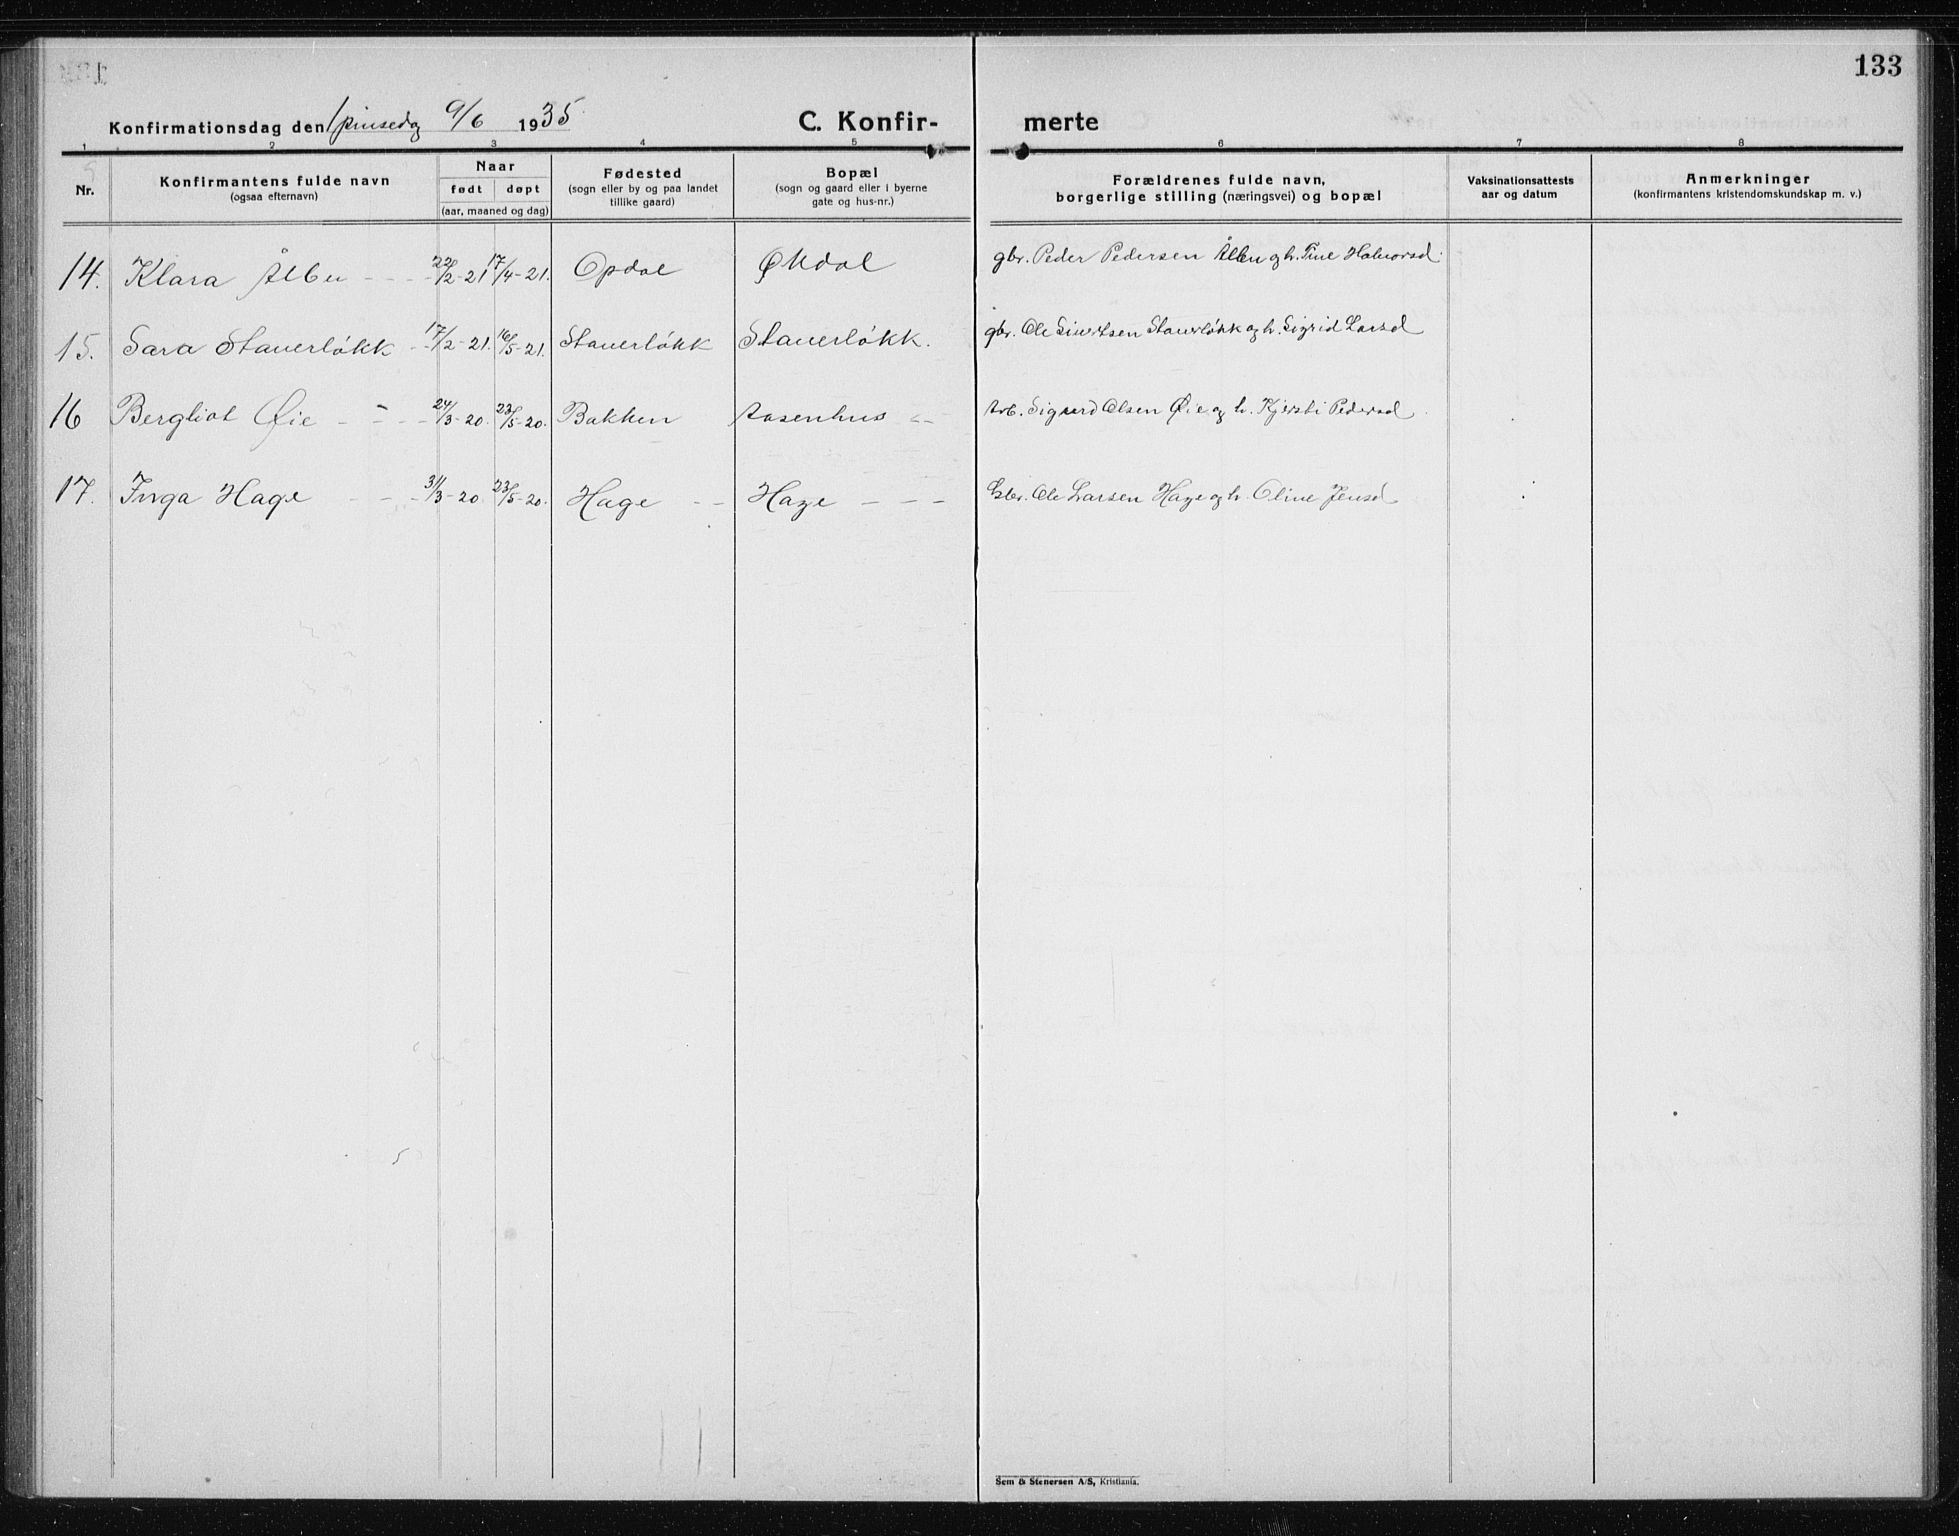 133
Konfirmationsdag den 1 pinsedag 9/6 1935
C. Konfir-
merte
1 2 3 4 5 6 7 8
Nr.
Konfirmantens fulde navn
(ogsaa efternavn)
Naar
født døpt
(aar, maaned og dag)
Fødested
(sogn eller by og paa landet
tillike gaard)
Bopæl
(sogn og gaard eller i byerne
gate og hus-nr.)
Forældrenes fulde navn,
borgerlige stilling (næringsvei) og bopæl
Vaksinationsattests
aar og datum
Anmerkninger
(konfirmantens kristendomskundskap m. v.)
14. Klara Ålbu 22/2-21 17/4-21. Opdal gbr. Peder Pedersen Ålbu og h. Tine Halvorsd.
15. Sara Stauerløkk 17/2-21. 16/5-21. Stauerløkk Stauerløkk. gbr. Ole Siwertsen Stauerløkk og h. Sigrid Larsd
16 Bergliot Øie 24/3-20. 23/5-20. Bakken Aasenhus Arb. Sigurd Olsen Øie og h. Kjersti Pedersd
17. Inga Hage 31/3-20. 23/5-20. Hage Hage Gbr. Ole Larsen Hage og h. Oline Jensd
Sem & Stenersen A/S, Kristiania.